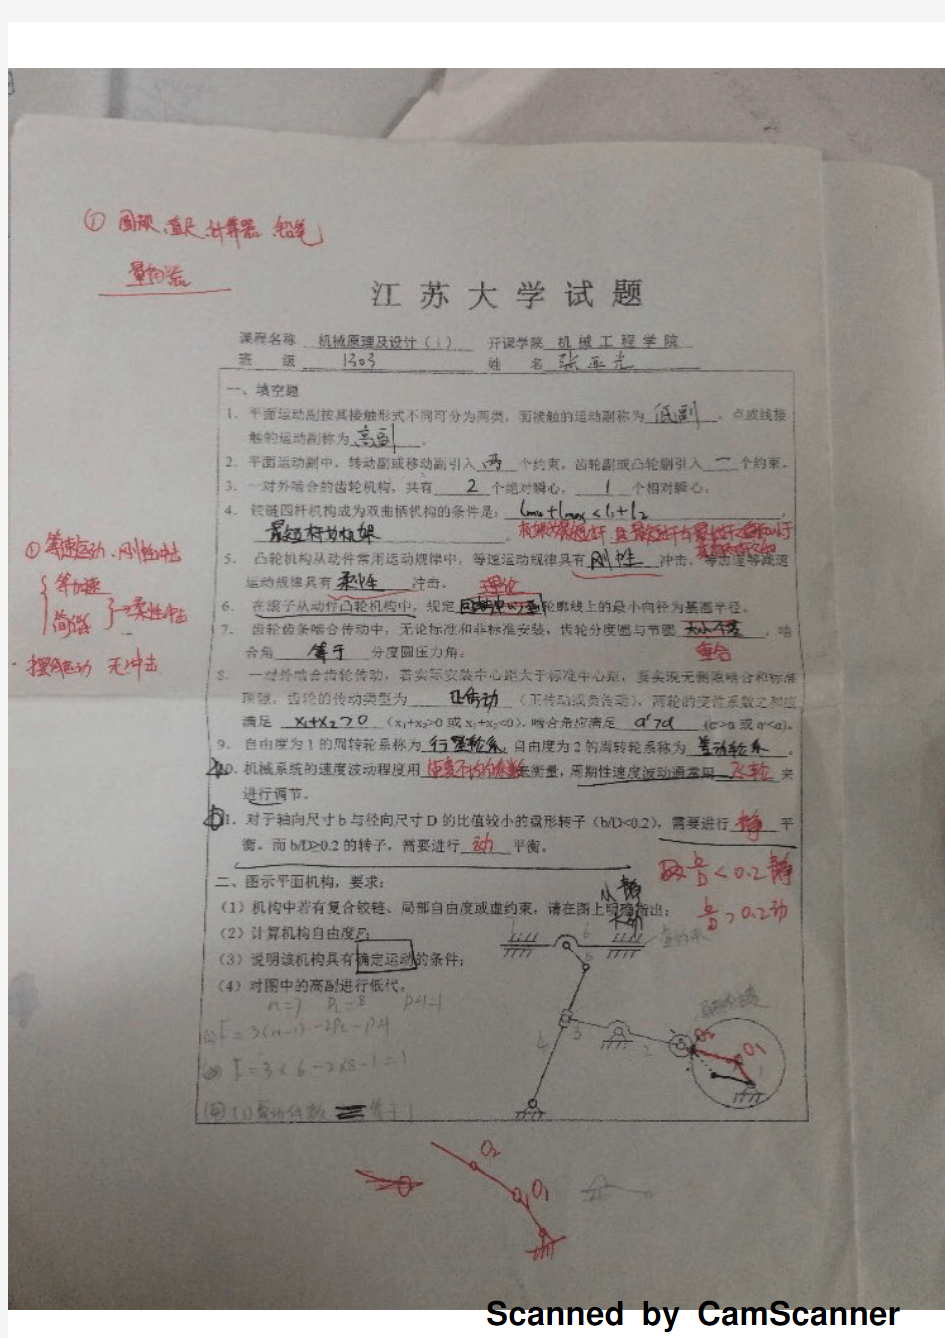 ① 圆规、直尺、计算器、铅笔
量角器
江苏大学试题
课程名称 机械原理及设计(i) 开课学院 机械工程学院
班 级 1303 姓 名
一、填空题
1. 平面运动副按其接触形式不同可分为两类,面接触的运动副称为 低副 。点或线接
触的运动副称为 高副 。
2. 平面运动副中,转动副或移动副引入 两 个约束,齿轮副或凸轮副引入 一 个约束。
3. 一对外啮合的齿轮机构,共有 2 个绝对瞬心, 1 个相对瞬心。
4. 铰链四杆机构成为双曲柄机构的条件是: lmin+lmax<l1+l2
最短杆为机架 。
5. 凸轮机构从动件常用运动规律中,等速运动规律具有 刚性 冲击,等加速等减速
运动规律具有 柔性 冲击。 理论
6. 在滚子从动件凸轮机构中,规定 轮廓线上的最小向径为基圆半径。
7. 齿轮齿条啮合传动中,无论标准和非标准安装,齿轮分度圆与节圆 大小不变 ,啮
重合
合角 等于 分度圆压力角。
8. 一对外啮合齿轮传动,若实际安装中心距大于标准中心距,要实现无侧隙啮合和标准
顶隙,齿轮的传动类型为 正传动 (正传动或负传动),两轮的变位系数之和应
满足 x1+x2>0 (x₁+x₂>0或x₁+x₂<0),啮合角应满足 α'>α (α'>α或α'<α)。
9. 自由度为1的周转轮系称为 行星轮系,自由度为2的周转轮系称为 差动轮系 。
10. 机械系统的速度波动程度用 速度不均匀系数 来衡量,周期性速度波动通常用 飞轮 来
进行调节。
11. 对于轴向尺寸b与径向尺寸D的比值较小的盘形转子(b/D<0.2),需要进行 静 平
衡。而b/D≥0.2的转子,需要进行 动 平衡。
b/D<0.2静
b/D>0.2动
小静
大动
① 等速运动、刚性冲击
等加速
简谐 →柔性冲击
无冲击
二、图示平面机构,要求:
(1)机构中若有复合铰链、局部自由度或虚约束,请在图上明确指出;
(2)计算机构自由度F;
(3)说明该机构具有确定运动的条件;
(4)对图中的高副进行低代。
n=7 PL=8 PH=1
F=3(n-1)-2PL-PH
F=3×6-2×8-1=1
等于1
虚约束
局部自由度
7 6 5 4 3 2 1
O2 O1
O2
O1
Scanned by CamScanner